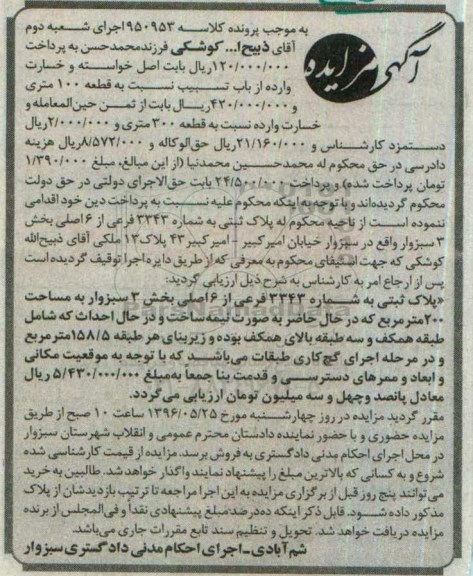 آگهی مزایده
به موجب پرونده کلاسه ۹۵۰۹۵۳ اجرای شعبه دوم
آقای ذبیح‌ا... کوشکی فرزند محمدحسن به پرداخت
۱۲۰/۰۰۰/۰۰۰ ریال بابت اصل خواسته و خسارت
وارده از باب تسبیب نسبت به قطعه ۱۰۰ متری
و ۴۲۰/۰۰۰/۰۰۰ ریال بابت از ثمن حین‌المعامله و
خسارت وارده نسبت به قطعه ۳۰۰ متری و ۲/۰۰۰/۰۰۰ ریال
دستمزد کارشناس و ۲۱/۱۶۰/۰۰۰ ریال حق‌الوکاله و ۸/۵۷۲/۰۰۰ ریال هزینه
دادرسی در حق محکوم له محمدحسین محمدنیا (از این مبالغ، مبلغ ۱/۳۹۰/۰۰۰
تومان پرداخت شده) و پرداخت ۲۴/۵۰۰/۰۰۰ بابت حق‌الاجرای دولتی در حق دولت
محکوم گردیده‌اند و با توجه به اینکه محکوم علیه نسبت به پرداخت دین خود اقدامی
ننموده است از ناحیه محکوم له پلاک ثبتی به شماره ۳۳۴۳ فرعی از ۶ اصلی بخش
۳ سبزوار واقع در سبزوار خیابان امیرکبیر - امیرکبیر ۴۳ پلاک ۱۳ ملکی آقای ذبیح‌الله
کوشکی که جهت استیفای محکوم به معرفی که از طریق دایره اجرا توقیف گردیده است
پس از ارجاع امر به کارشناس به شرح ذیل ارزیابی گردید:
«پلاک ثبتی به شماره ۳۳۴۳ فرعی از ۶ اصلی بخش ۳ سبزوار به مساحت
۲۰۰ مترمربع که در حال حاضر به صورت نیمه‌ساخت و در حال احداث که شامل
طبقه همکف و سه طبقه بالای همکف بوده و زیربنای هر طبقه ۱۵۸/۵ مترمربع
و در مرحله اجرای گچ‌کاری طبقات می‌باشد که با توجه به موقعیت مکانی
و ابعاد و ممرهای دسترسی و قدمت بنا جمعاً به مبلغ ۵/۴۳۰/۰۰۰/۰۰۰ ریال
معادل پانصد و چهل و سه میلیون تومان ارزیابی می‌گردد.
مقرر گردید مزایده در روز چهارشنبه مورخ ۱۳۹۶/۰۵/۲۵ ساعت ۱۰ صبح از طریق
مزایده حضوری و با حضور نماینده دادستان محترم عمومی و انقلاب شهرستان سبزوار
در محل اجرای احکام مدنی دادگستری به فروش برسد. مزایده از قیمت کارشناسی شده
شروع و به کسانی که بالاترین مبلغ را پیشنهاد نمایند واگذار خواهد شد. طالبین به خرید
می‌توانند پنج روز قبل از برگزاری مزایده به این اجرا مراجعه تا ترتیب بازدیدشان از پلاک
مذکور داده شود. قابل ذکر اینکه ده درصد مبلغ پیشنهادی نقداً و فی‌المجلس از برنده
مزایده دریافت خواهد شد. تحویل و تنظیم سند تابع مقررات جاری می‌باشد.
شم‌آبادی - اجرای احکام مدنی دادگستری سبزوار